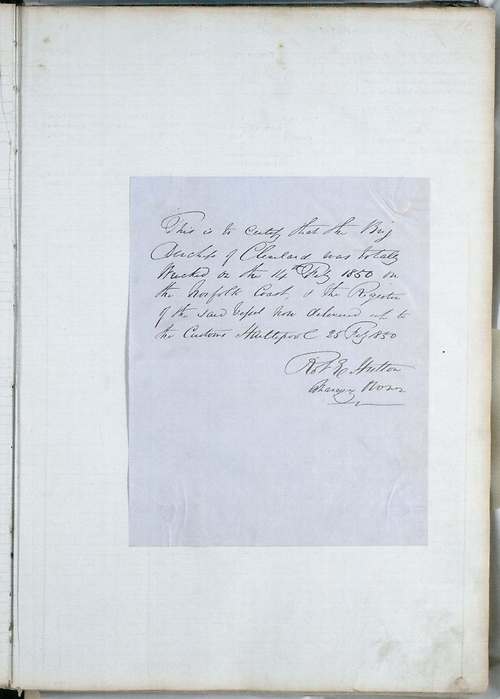 This is to certify that the Brig
Duchess of Cleveland was totally
Wrecked on the 14th Feby 1850 on
the Norfolk Coast, & the Register
of the said Vessel now delivered up to
the Customs Hartlepool 25 Feby 1850
Robt Hutton
Managing Owner